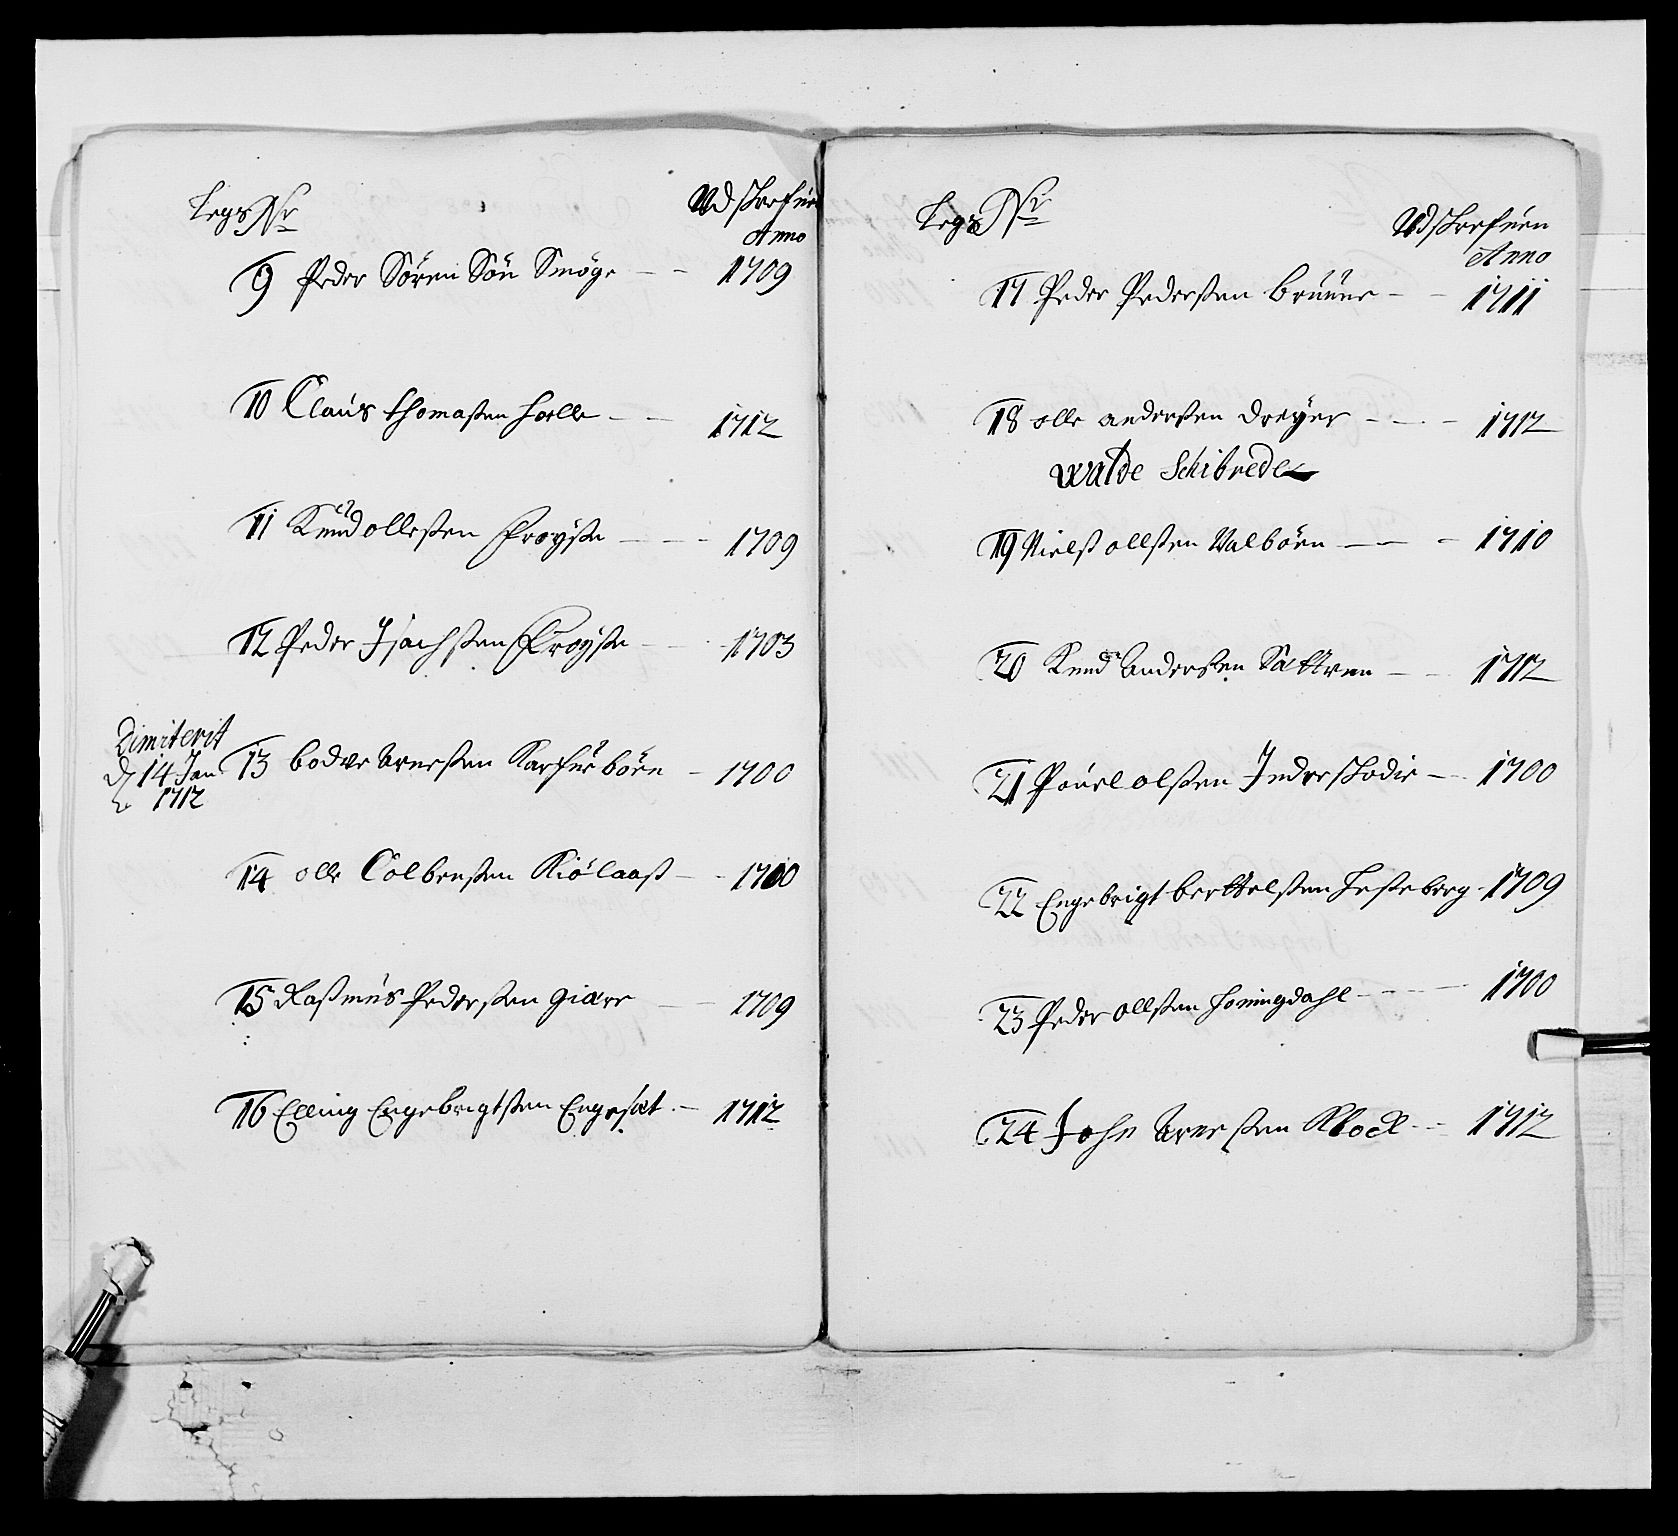 Legs Nr
Udskrefuen
Anno
9 Peder Sören Sön Smöge - - 1709
10 Claus thomasen Holle - - 1712
11 Knud ollesten Frøyste - - - 1709
12 Peder Isachsten Frøyste - - 1703
Dimiterit
d 14 Jan
1712
13 bodve Arnesten Karfuebörn - 1700
14 olle Colbensten Kiölaas - - 1700
15 Rasmus Pedersten Giare - - 1709
16 Elling Engebrigtsten Engesæt. - 1712
Legs Nr
Udskrefuen
Anno
17 Peder Pedersten bruune - - 1711
18 olle andersten dreyer - - - 1712
walde Schibrede
19 Niels ollsten Valbörn - - - 1710
20 Knud Andersten Sættren - - 1712
21 Pouel olsten Indreskodie - - 1700
22 Engebrigt berttelsten Hesteberg - 1709
23 Peder ollsten Honingdahl - - - - 1700
24 John Arnesten Klock - - 1712